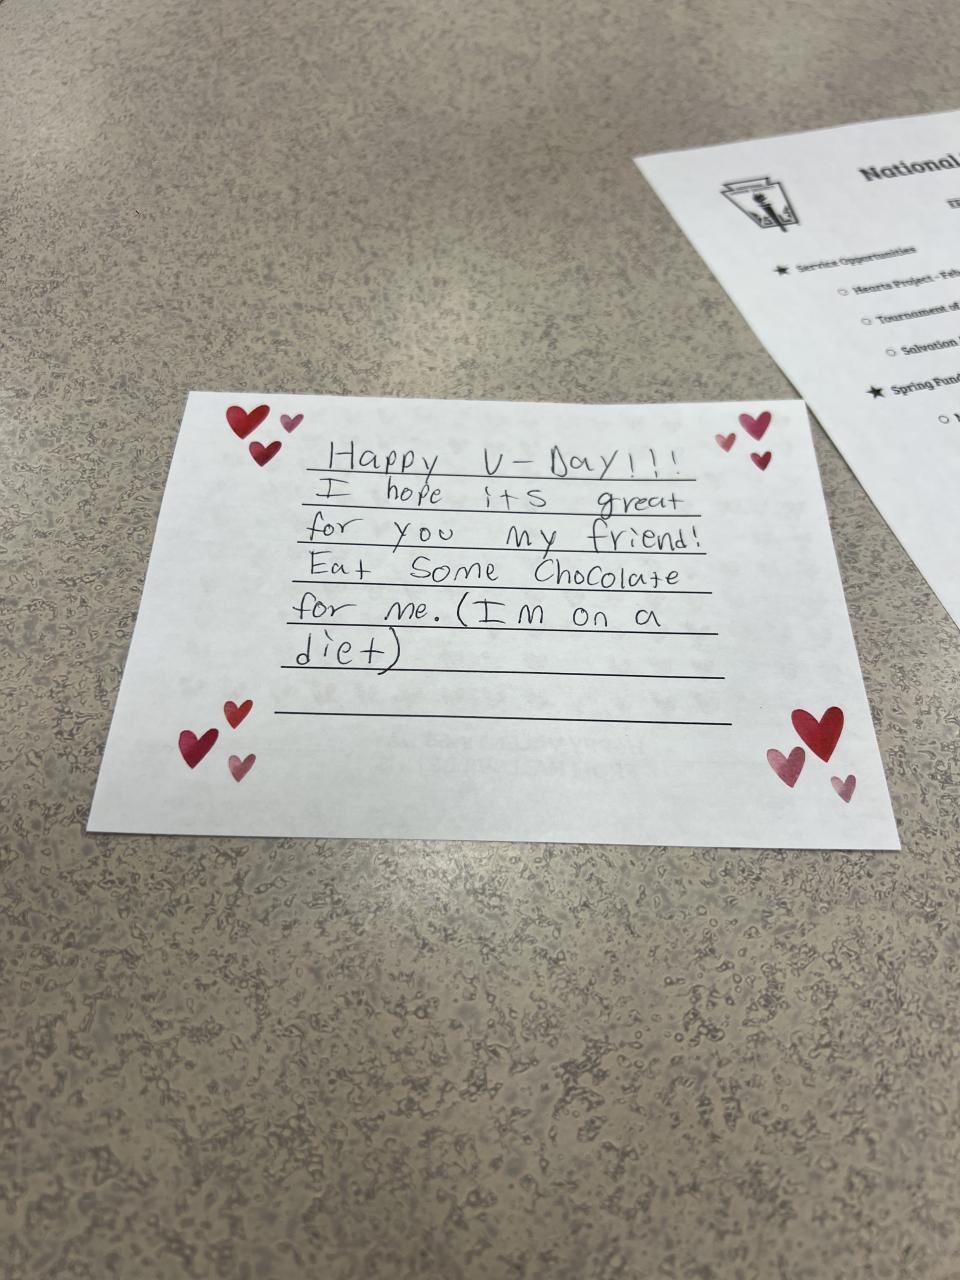 Happy V-Day!!!
I hope its great
for you my friend!
Eat Some Chocolate
for me. (Im on a
diet)
National
Service Opportunities
Hearts Project - Feb
Tournament of
Salvation
Spring Fund